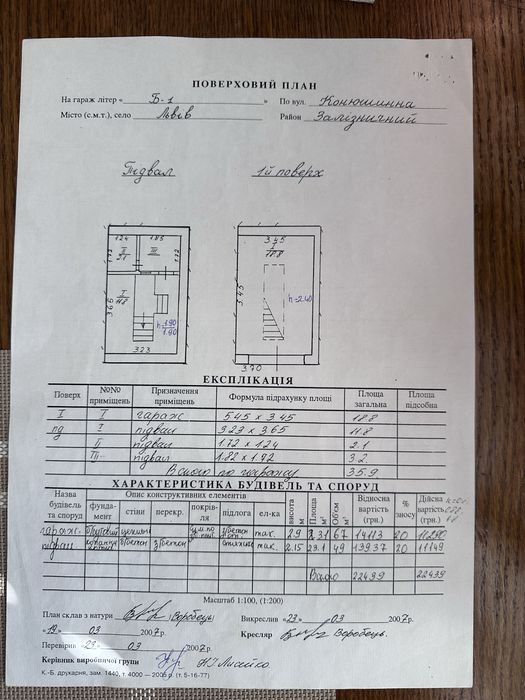 ПОВЕРХОВИЙ ПЛАН
На гараж літер « Б-1 » По вул. Конюшинна
Місто (с.м.т.), село Львів Район Залізничний
Підвал 1й поверх
1.24 1.85
1.73 II 2.1 III 1.72
3.66 I 11.8
h=1.90 1.90
3.23
3.45
I 18.8
5.45
h=2.40
3.70
ЕКСПЛІКАЦІЯ
Поверх №№ приміщень Призначення приміщень Формула підрахунку площі Площа загальна Площа підсобна
I I гараж 5.45 x 3.45 18.8
пд I підвал 3.23 x 3.65 11.8
II підвал 1.72 x 1.24 2.1
III підвал 1.82 x 1.72 3.2
Всього по гаражу 35.9
ХАРАКТЕРИСТИКА БУДІВЕЛЬ ТА СПОРУД
Назва будівель та споруд Опис конструктивних елементів висота м Площа м² Об'єм м³ Відносна вартість (грн.) % зносу Дійсна вартість (грн.)
фундамент стіни перекр. покрівля підлога ел-ка
гараж бутовий цегляні так. 2.9 23.1 67 14113 20 11290
підвал бетон з/бетон так. 2.15 23.1 49 13937 20 11149
Всього 22439 22439
Масштаб 1:100, (1:200)
План склав з натури Воробець Викреслив «23» 03 2007р.
«19» 03 2007р. Кресляр Воробець.
Перевірив «23» 03 2007р.
Керівник виробничої групи
К.-Б. друкарня, зам. 1440, т. 4000 — 2005 р. (т. 5-16-77)